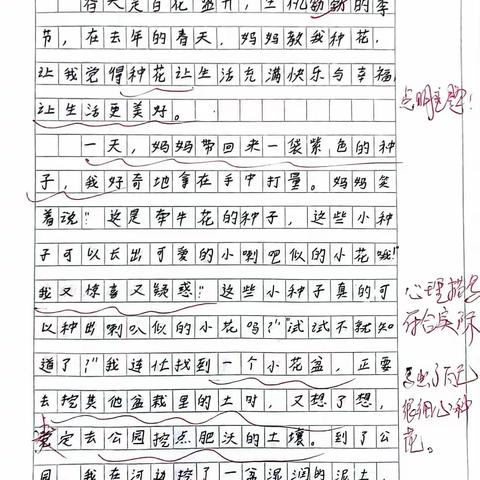 春天是百花盛开，生机勃勃的季
节，在去年的春天，妈妈教我种花，
让我觉得种花让生活充满快乐与幸福，
让生活更美好。
点明主题！
一天，妈妈带回来一袋紫色的种
子，我好奇地拿在手中打量。妈妈笑
着说："这是牵牛花的种子，这些小种
子可以长出可爱的小喇吧似的小花哦！"
我又惊喜又疑惑："这些小种子真的可
以种出喇叭似的小花吗？""试试不就知
道了？"我连忙找到一个小花盆，正要
去挖其他盆栽里的土时，又想了想，
定去公园挖点肥沃的土壤。到了公
园，我在河边挖了一盆湿润的泥土，
心理描写
符合实际
自己
很用心种
花。